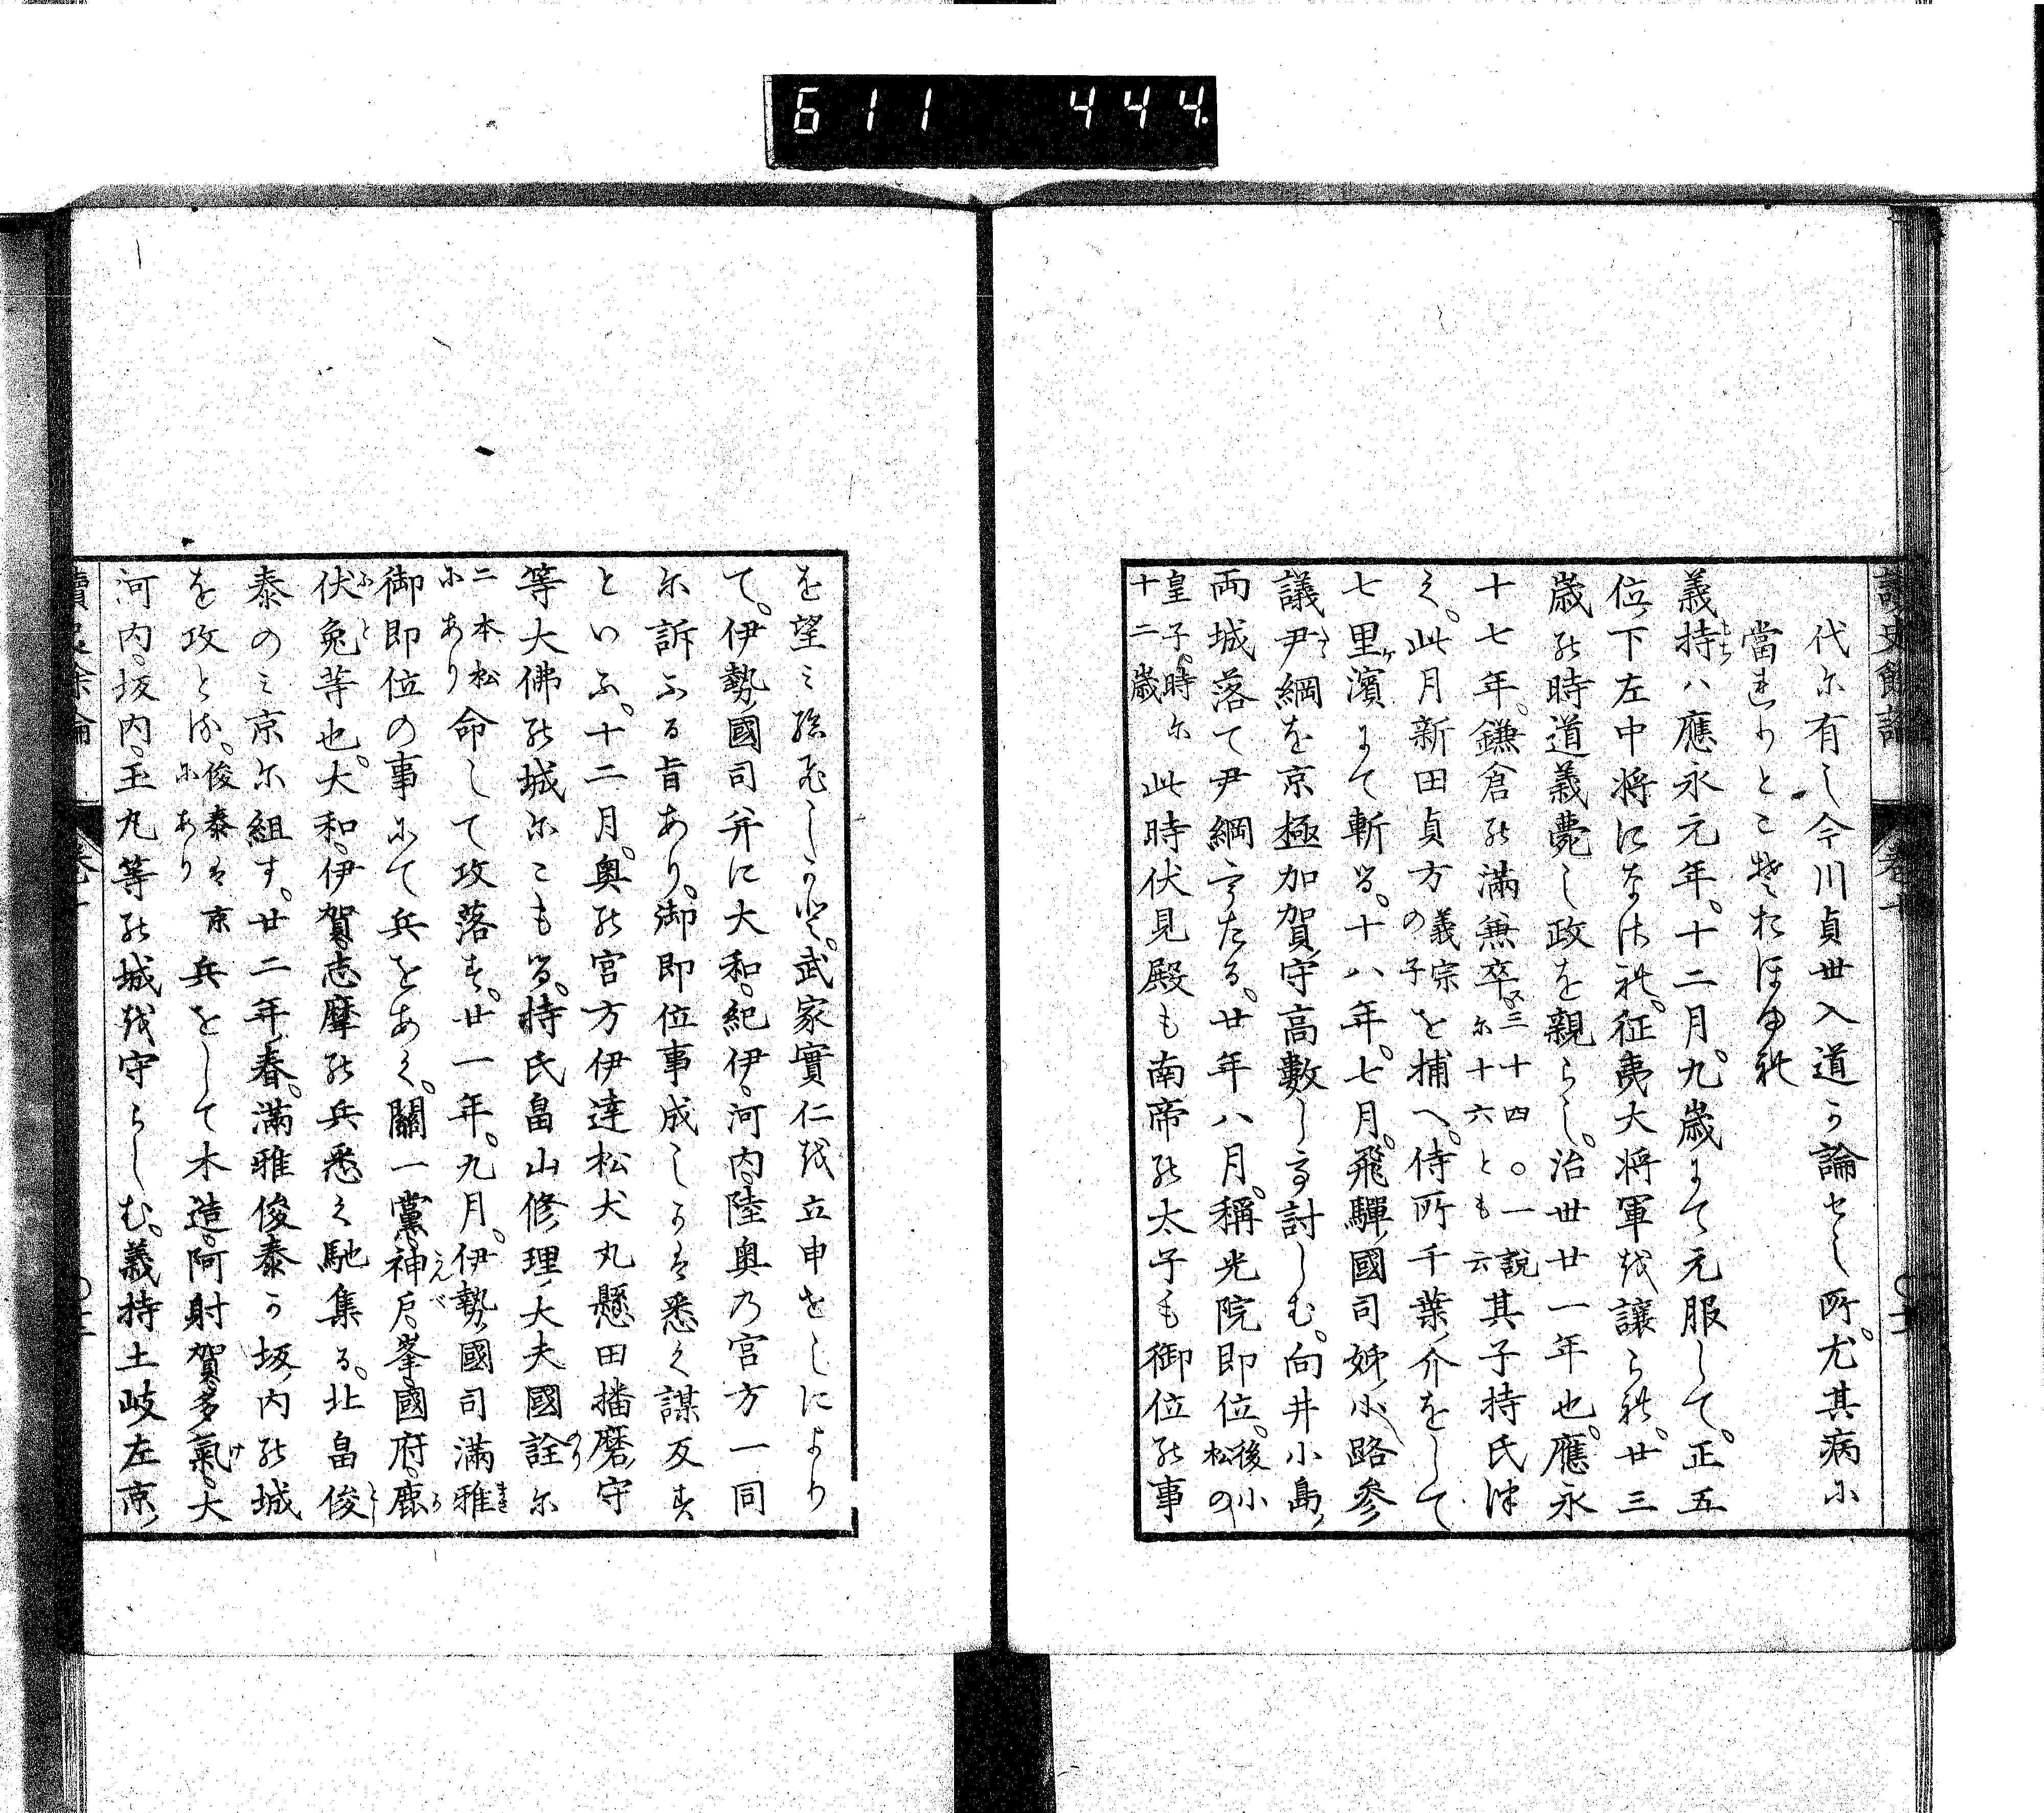 611 444
代に有し今川貞世入道か論せし所。尤其病に
當れりとこそおほゆれ
義持ハ應永元年。十二月。九歳にて元服して。正五
位下左中将になされ。征夷大将軍を譲られ。廿三
歳の時道義薨し政を親らし。治世廿一年也。應永
十七年。鎌倉の満兼卒 三十四。○一説に十六とも云 其子持氏つ
く。此月新田貞方 義宗の子 を捕へ。侍所千葉介をして
七里濱にて斬る。十八年。七月。飛騨國司姉小路參
議尹綱を京極加賀守高數して討しむ。向井小島
両城落て尹綱うたる。廿年八月。稱光院即位。後小松の
皇子。時に十二歳 此時伏見殿も南帝の太子も御位の事
を望み給ひしかど。武家實仁を立申せしにより
て。伊勢國司并に大和。紀伊。河内。陸奥の宮方一同
に訴ふる旨あり。御即位事成しかは悉く謀反す
といふ。十二月。奥の宮方伊達松犬丸懸田播磨守
等大佛の城にこもる。持氏畠山修理大夫國詮に
二本松にあり 命して攻落す。廿一年。九月。伊勢國司満雅
御即位の事にて兵をあく。關一黨。神戸。峯。國府。鹿
伏兔等也。大和。伊賀。志摩の兵悉く馳集る。北畠俊
泰のミ京に組す。廿二年。春。満雅俊泰か坂内の城
を攻とる。俊泰は京にあり 兵をして木造。阿射賀。多氣。大
河内。坂内。玉丸等の城を守らしむ。義持土岐左京
讀史餘論